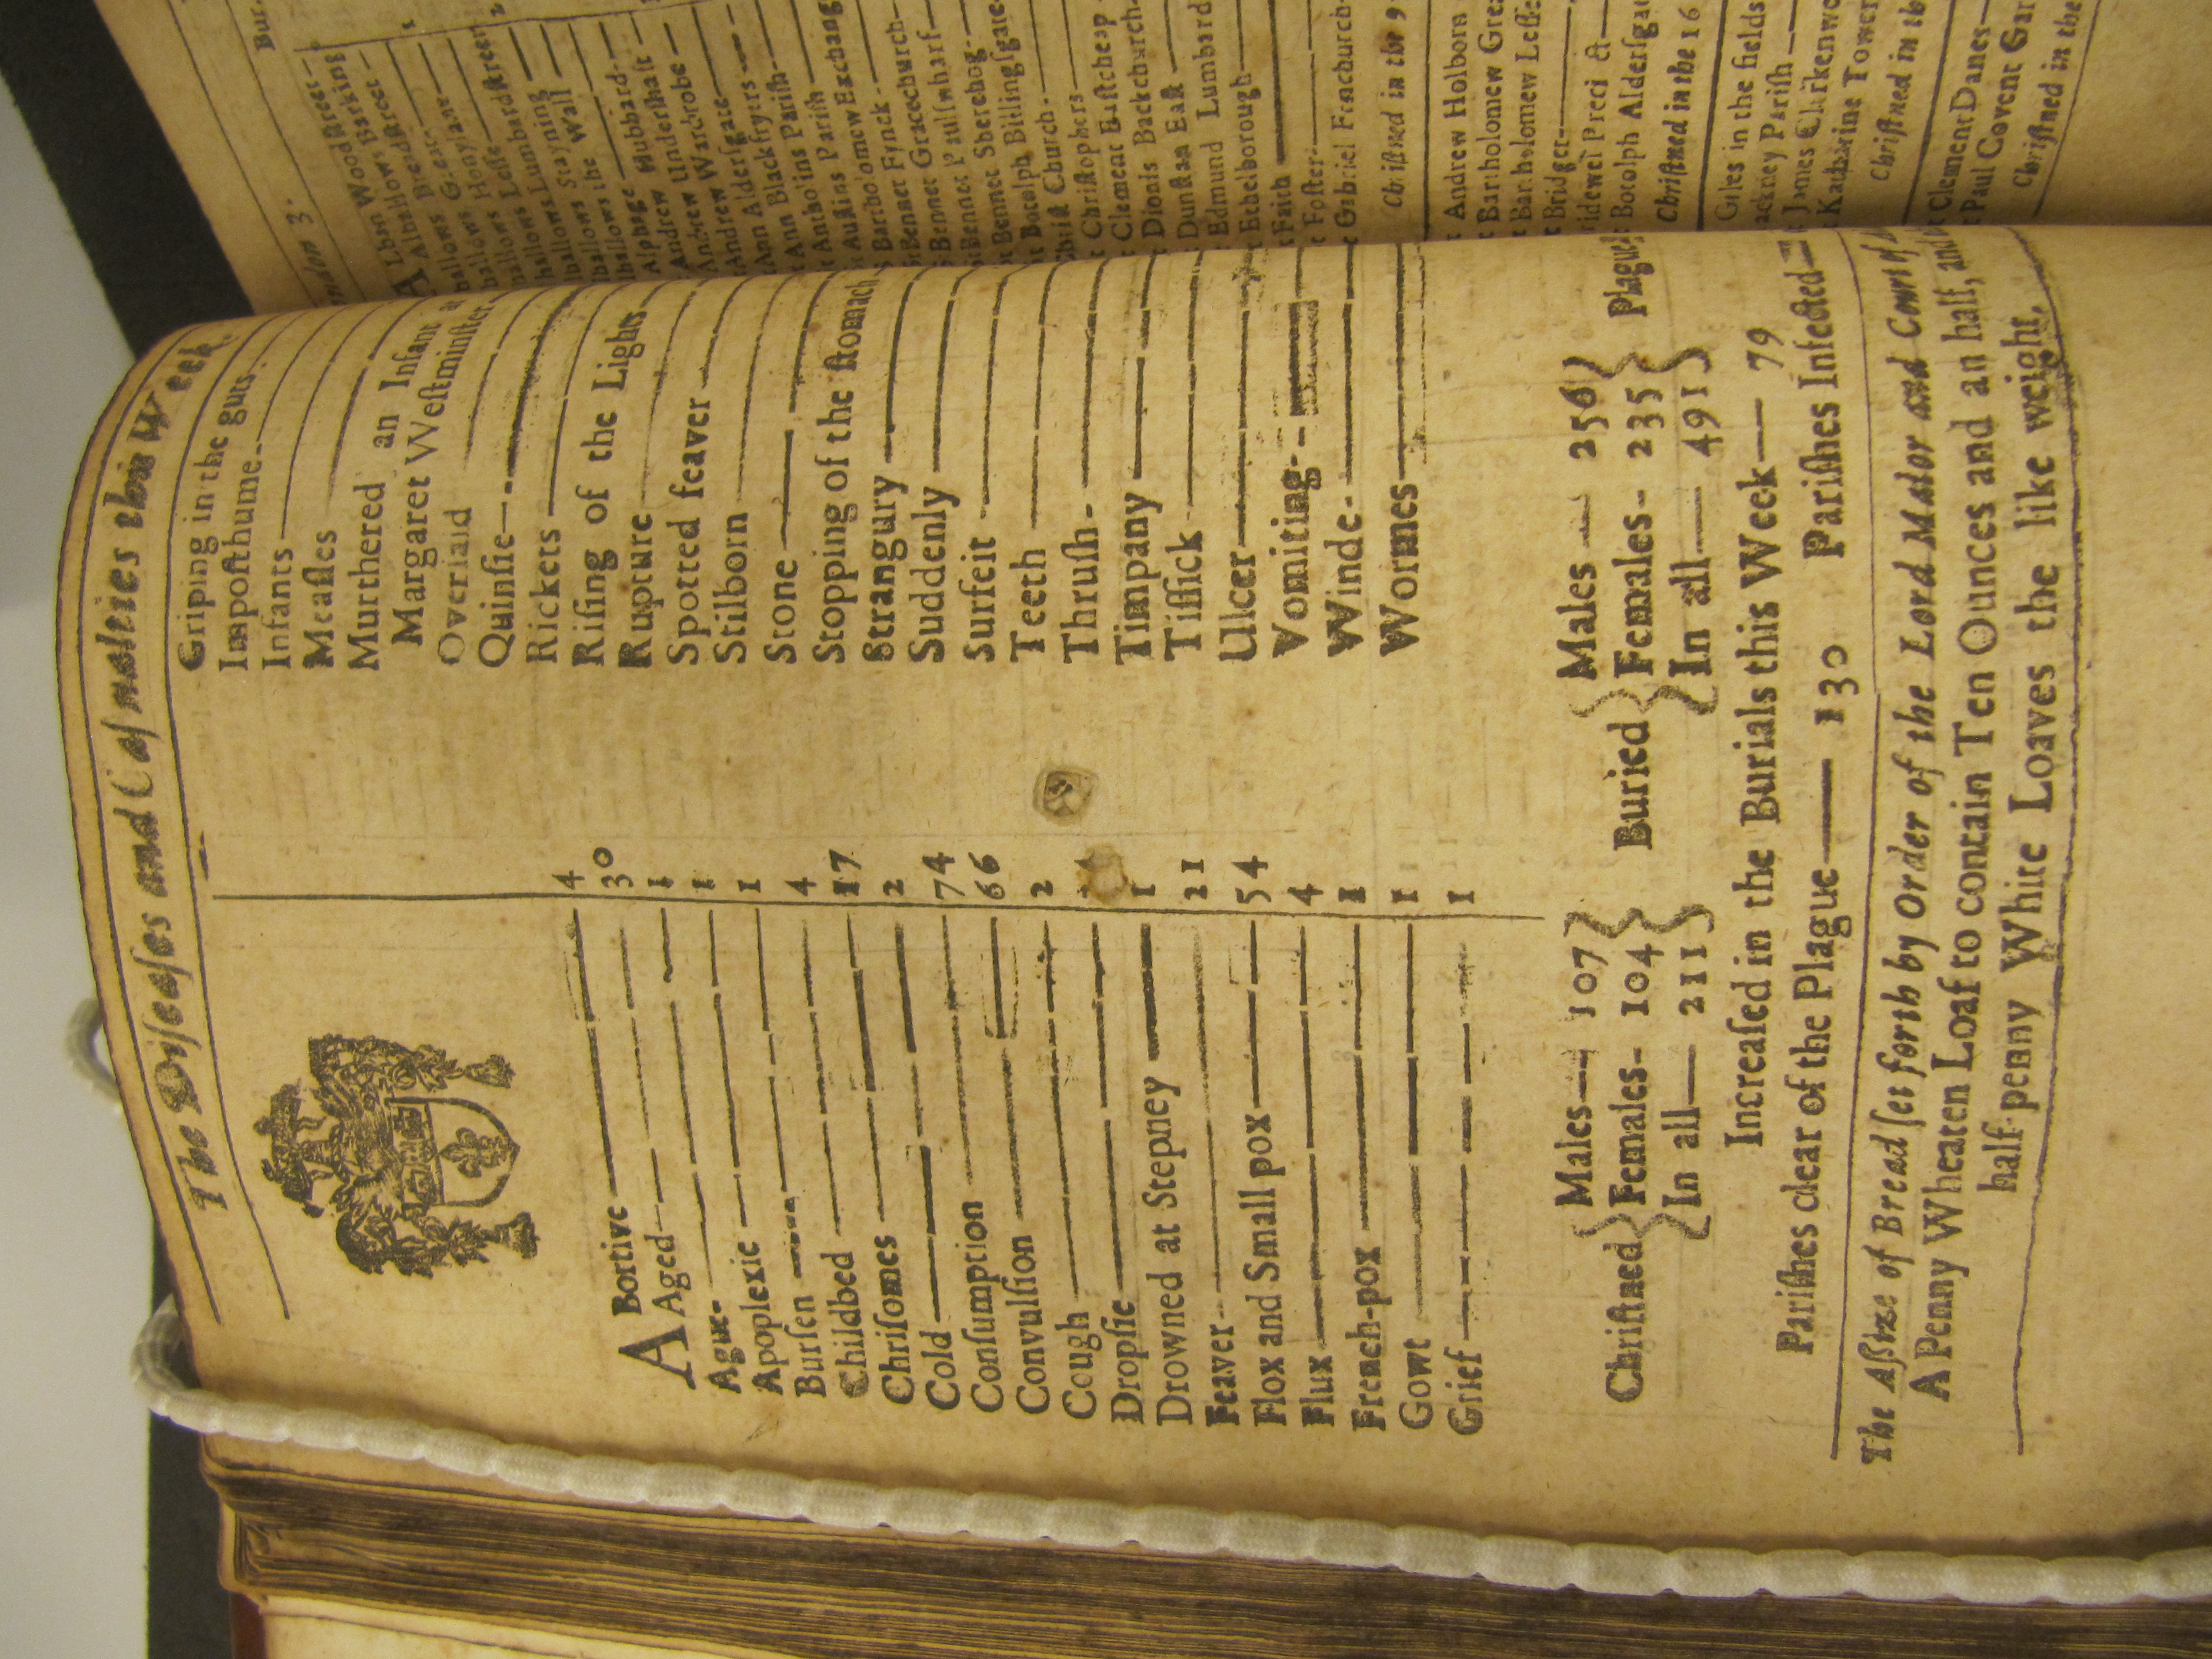 The Diſeaſes and Caſualties this Week.
ABortive 4
Aged 30
Ague 1
Apoplexie 1
Burſen 1
Childbed 4
Chriſomes 17
Cold 2
Conſumption 74
Convulſion 66
Cough 2
Dropſie
Drowned at Stepney 1
Feaver 21
Flox and Small pox 54
Flux 4
French-pox 1
Gowt 1
Grief 1
Griping in the guts
Impoſthume
Infants
Meaſles
Murthered an Infant at
Margaret Weſtminſter
Overlaid
Quinſie
Rickets
Riſing of the Lights
Rupture
Spotted feaver
Stilborn
Stone
Stopping of the ſtomach
Strangury
Suddenly
Surfeit
Teeth
Thruſh
Timpany
Tiſſick
Ulcer
Vomiting
Winde
Wormes
Chriſtned
Males 107
Females 104
In all 211
Buried
Males 256
Females 235
In all 491
Plague
Increaſed in the Burials this Week 79
Pariſhes clear of the Plague 130 Pariſhes Infected
The Aſsize of Bread ſet forth by Order of the Lord Maior and Court of
A Penny Wheaten Loaf to contain Ten Ounces and an half, and
half-penny White Loaves the like weight.
3.
Bur.
Alban Woodſtreet
Alhallows Barking
Alhallows Breadſtreet
hallows Great
hallows Honylane
hallows Leſſe
hallows Lumbardſtreet
hallows Stayning
hallows the Wall
Alphage
Andrew Hubbard
Andrew Underſhaft
Andrew Wardrobe
Ann Alderſgate
Ann Blackfryers
Antholins Pariſh
Auſtins Pariſh
Bartholomew Exchang
Bennet Fynck
Bennet Gracechurch
Bennet Paulſwharf
Bennet Sherehog
Botolph Billingſgate
Chriſt Church
Chriſtophers
Clement Eaſtcheap
Dionis Backchurch
Dunſtan Eaſt
Edmund Lumbard
Ethelborough
Faith
Foſter
Gabriel Fenchurch
Chriſtned in the 9
Andrew Holborn
Bartholomew Grea
Bartholomew Leſſe
Bridget
ridewel Preci
Botolph Alderſgat
Chriſtned in the 16
Giles in the fields
ackney Pariſh
James Clerkenwo
Katharine Tower
Chriſtned in th
Clement Danes
Paul Covent Gar
Chriſtned in the